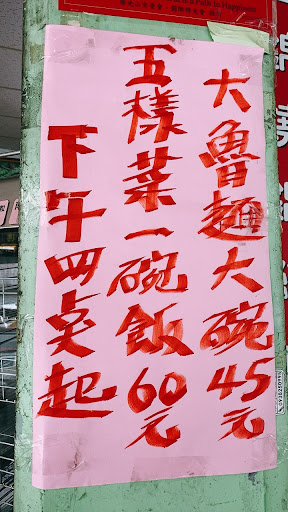 大魯麵大碗45元
五樣菜一碗飯60元
下午四点起